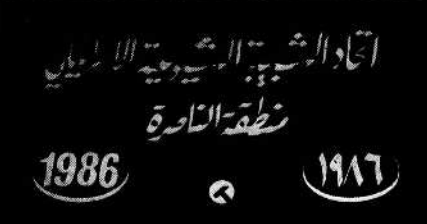 اتحاد الشبيبة الشيوعية الاسرائيلي
منطقة الناصرة
1986
١٩٨٦